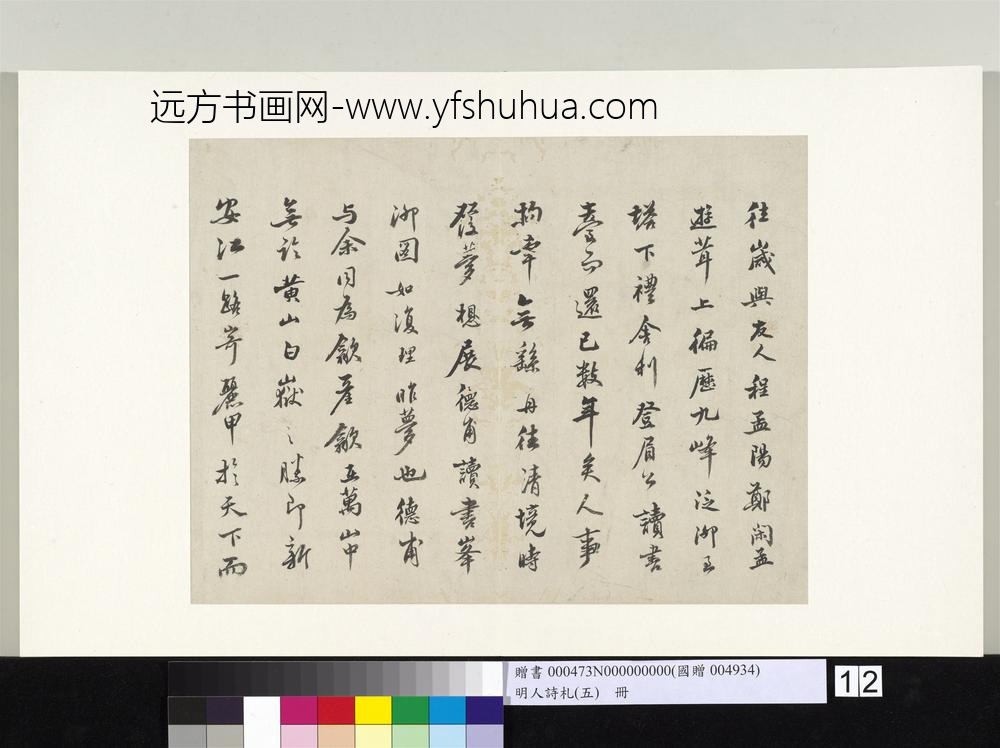 远方书画网-www.yfshuhua.com
往歲與友人程孟陽鄭閑孟
遊茸上徧歷九峰泛泖至
塔下禮舍利登眉公讀書
臺而還已數年矣人事
拘牽無繇再往清境時
發夢想展德甫讀書峯
泖圖如復理昨夢也德甫
与余同為歙產歙在萬山中
無論黃山白嶽之勝即新
安江一路奇麗甲於天下而
贈書 000473N000000000(國贈 004934)
明人詩札(五) 冊
12